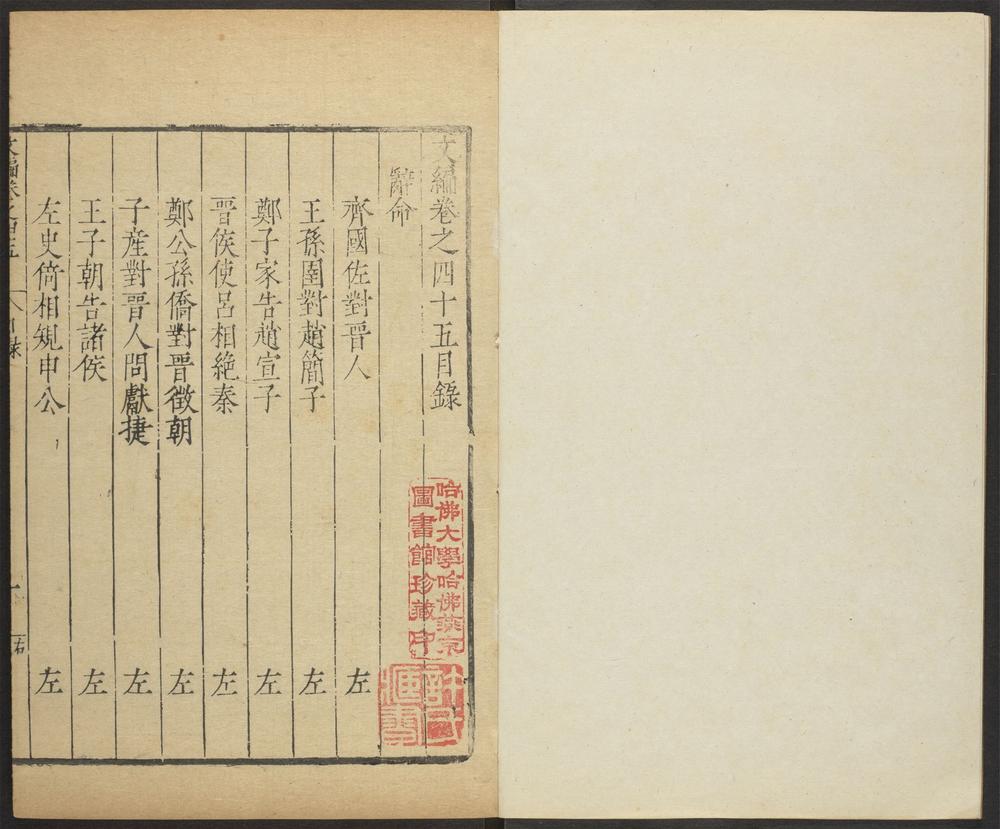 文編卷之四十五目錄
辭命
齊國佐對晉人 左
王孫圉對趙簡子 左
鄭子家告趙宣子 左
晉侯使呂相絕秦 左
鄭公孫僑對晉徵朝 左
子產對晉人問獻捷 左
王子朝告諸侯 左
左史倚相規申公 左
文編卷之四五 目錄 一
哈佛大學哈佛燕京
圖書館珍藏印